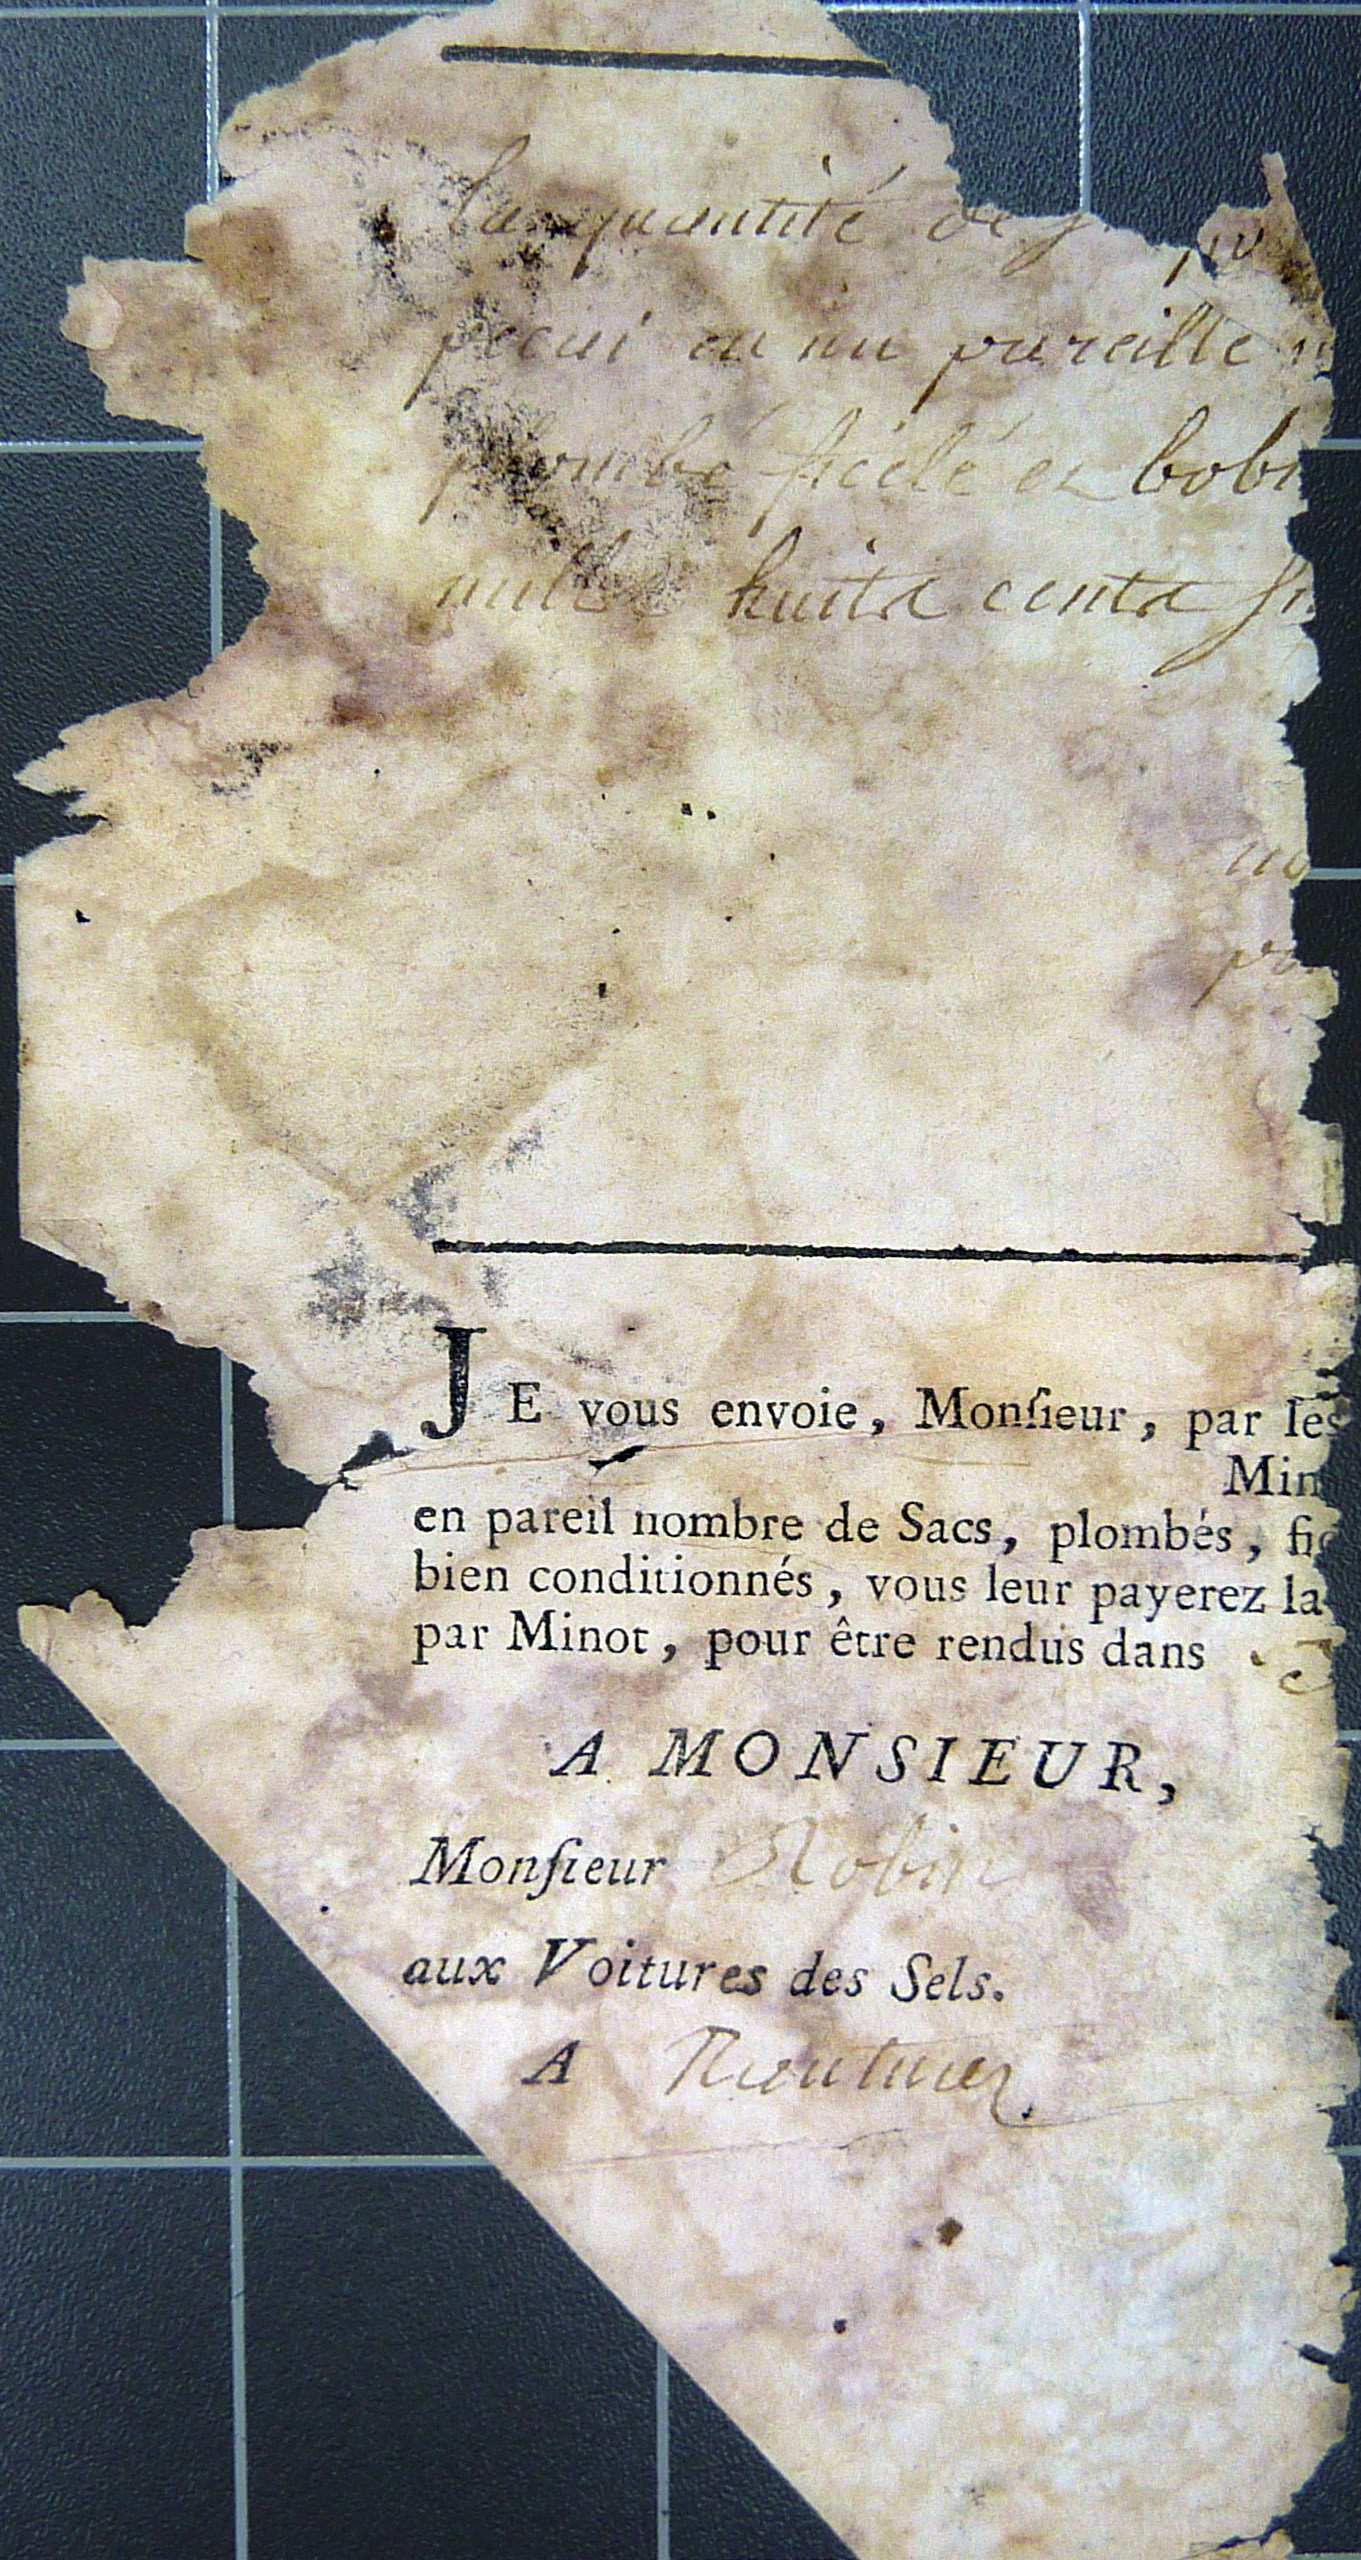 la quantité de
en un pareille
plombé ficelé et bob
mille huita centa
JE vous envoie, Monſieur, par les
Min
en pareil nombre de Sacs, plombés, fic
bien conditionnés, vous leur payerez la
par Minot, pour être rendus dans
A MONSIEUR,
Monſieur Robin
aux Voitures des Sels.
A